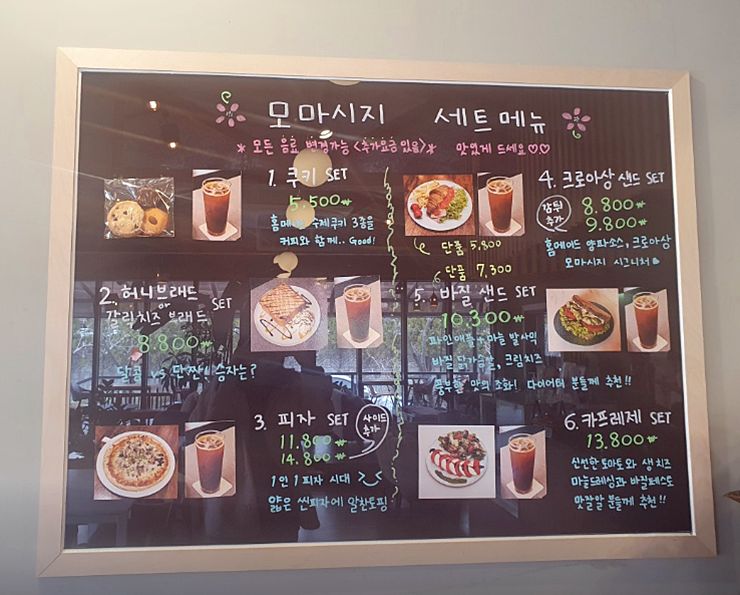 모마시지 세트메뉴
* 모든 음료 변경가능 <추가요금 있음> * 맛있게 드세요♡♡
1. 쿠키 SET
5,500₩
홈메이드 수제쿠키 3종을
커피와 함께.. Good!
2. 허니브래드
or
갈릭치즈 브래드 SET
8.800₩
달콤 vs 단짠! 승자는?
3. 피자 SET
사이드 추가
11.800₩
14.800₩
1인 1피자 시대
얇은 씬피자에 알찬토핑
4. 크로아상 샌드 SET
감튀 추가
8.800₩
9.800₩
홈메이드 양파소스, 크로아상
모마시지 시그니처
단품 5,800
단품 7,300
5. 바질 샌드 SET
10,300₩
파인애플+마늘 발사믹
바질 닭가슴살, 크림치즈
풍부한 맛의 조화! 다이어터 분들께 추천!!
6. 카프레제 SET
13,800₩
신선한 토마토와 생치즈
마늘드레싱과 바질페스토
맛잘알 분들께 추천!!